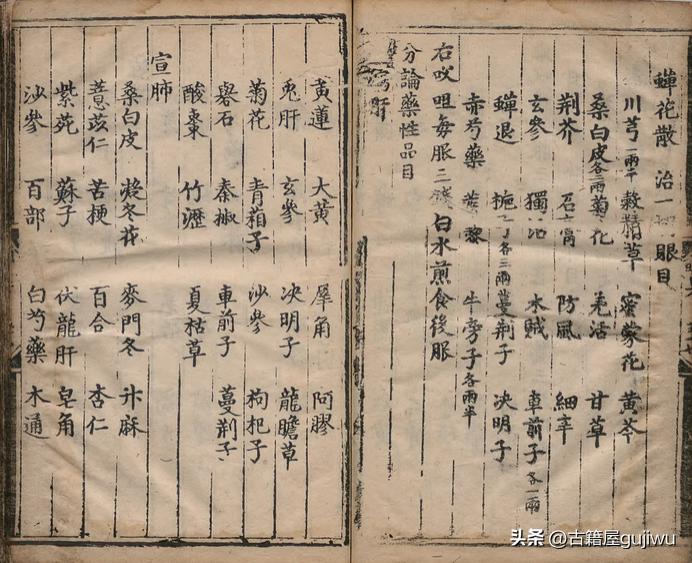 蟬花散 治一 眼目
川芎一兩半 穀精草 蜜蒙花 黄芩
桑白皮各二兩 菊花 羌活 甘草
荆芥 石膏 防風 細辛
玄參 獨活 木賊 車前子各一兩
蟬退 梔子各三兩 蔓荆子 决明子
赤芍藥 藜 牛旁子各兩半
右㕮咀每服二錢白水煎食後服
分論藥性品目
瀉肝
黄蓮 大黄 犀角 阿膠
兎肝 玄參 决明子 龍膽草
菊花 青葙子 沙參 枸杞子
礜石 秦椒 車前子 蔓荆子
酸棗 竹瀝 夏枯草
宣肺
桑白皮 欵冬花 麥門冬 升麻
薏苡仁 苦梗 百合 杏仁
紫菀 蘇子 伏龍肝 皂角
沙參 百部 白芍藥 木通
头条 @古籍屋gujiwu